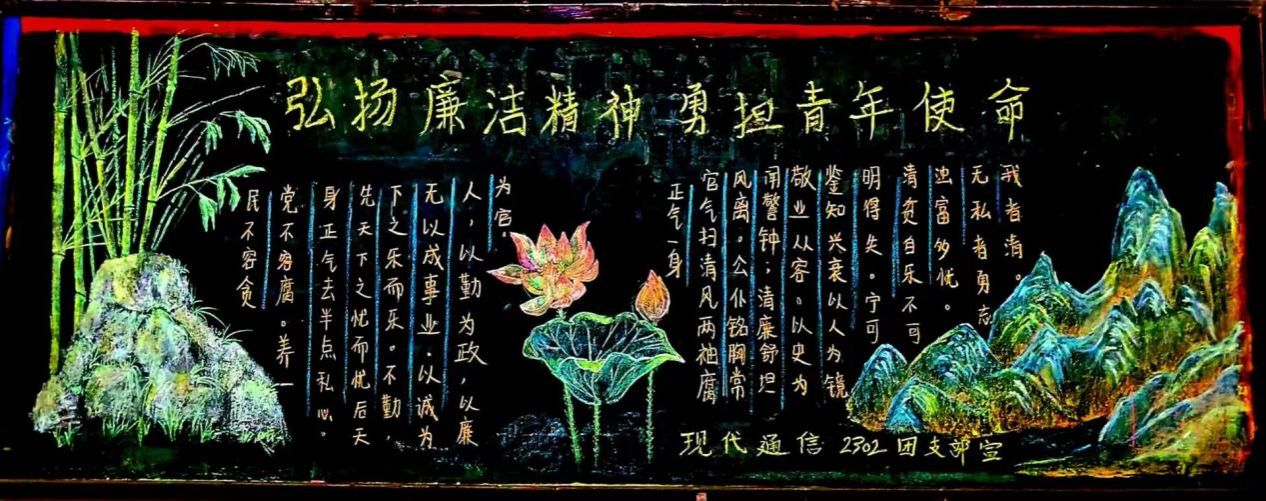 弘扬廉洁精神 勇担青年使命
我者清。
无私者勇志
浊富多忧。
清贫自乐不可
明得失。宁可
鉴知兴衰以人为镜
敬业从容。以史为
闻警钟；清廉舒坦
风离。公仆铭胸常
官气扫清风两袖腐
正气一身
为官。
人；以勤为政，以廉
无以成事业.以诚为
下之乐而乐。不勤，
先天下之忧而忧后天
身正气去半点私心。
党不容腐。养一
民不容贪
现代通信2302团支部宣